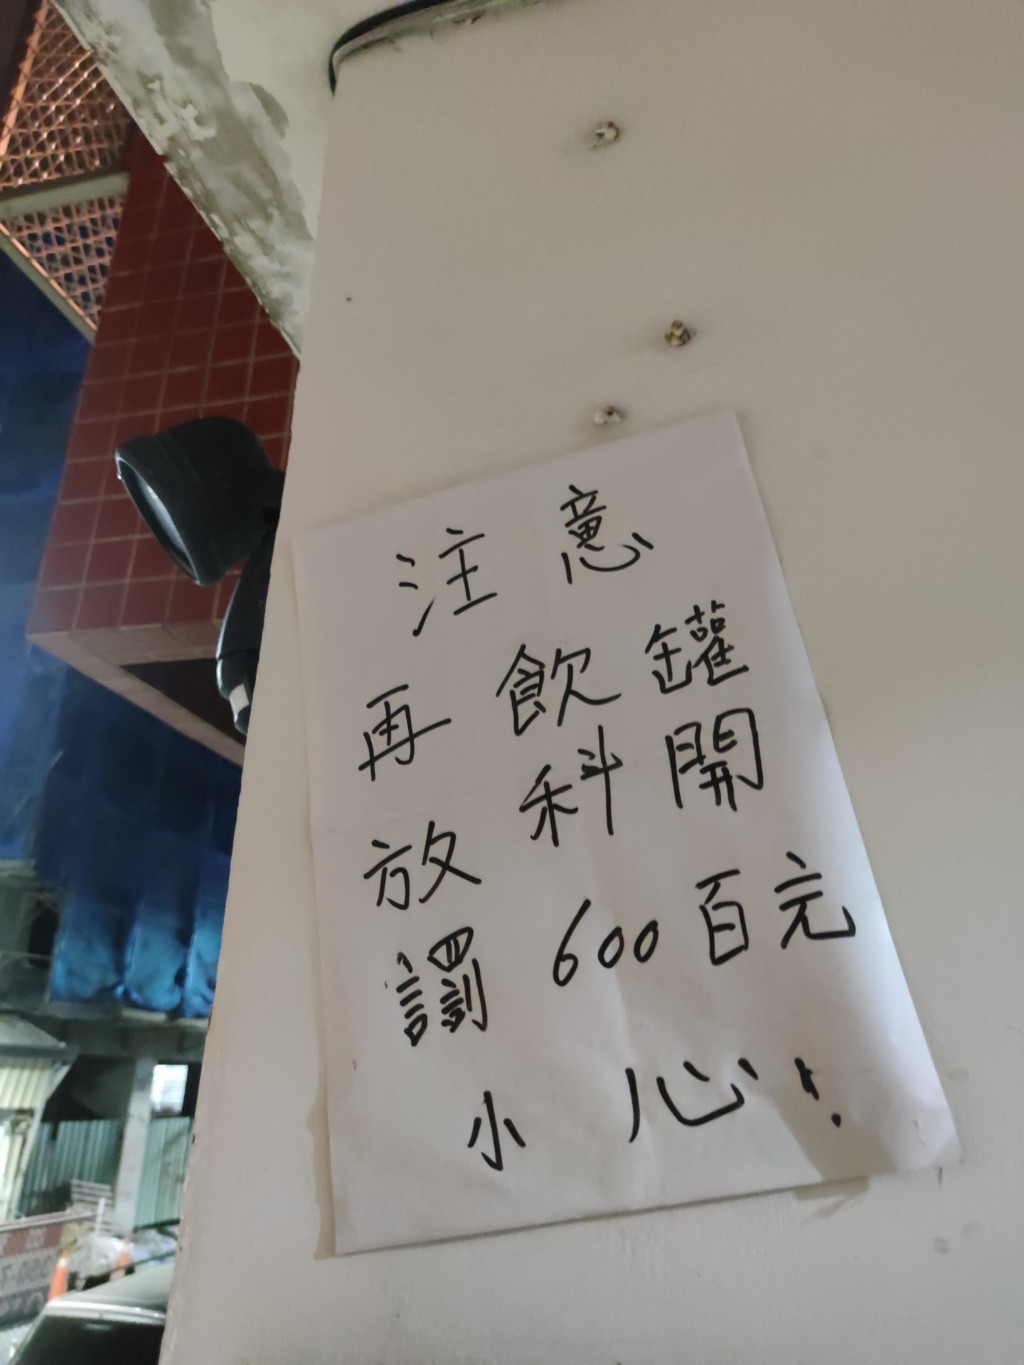 注意
再飲罐
放科開
罰600百元
小心!